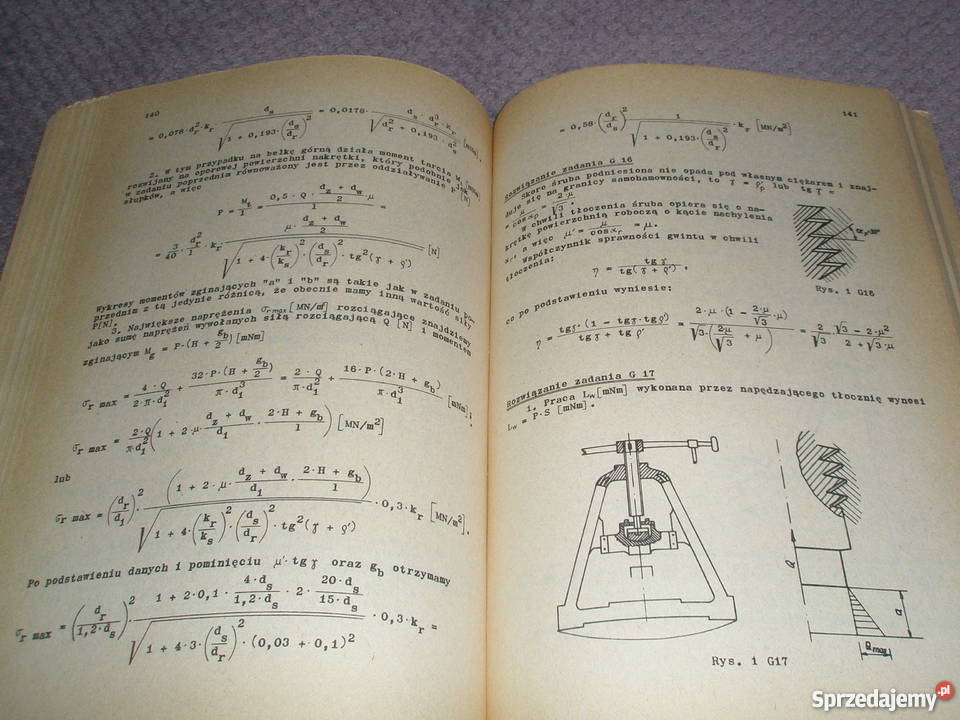 140
= 0,078·d_r^2·k_r · d_s / √(1 + 0,193·(d_s/d_r)^2) = 0,0178 · d_s·d_r^3·k_r / √(d_r^2 + 0,193·d_s^2)
2. W tym przypadku na belkę górną działa moment tarcia M_t
rozwijany na oporowej powierzchni nakrętki, który podobnie jak
w zadaniu poprzednim równoważony jest przez oddziaływanie P[N]
słupków, a więc
P = M_t/l = 0,5·Q · (d_z + d_w)/2 · μ / l =
= 3/40 · d_r^2/l · k_r · μ · (d_z + d_w)/2 / √(1 + 4·(k_r/k_s)^2·(d_s/d_r)^2·tg^2(γ + ϱ')) [N]
Wykresy momentów zginających "a" i "b" są takie jak w zadaniu po-
przednim z tą jedynie różnicą, że obecnie mamy inną wartość siły
P[N].
3. Największe naprężenia σ_r max [MN/m²] rozciągające znajdziemy
jako sumę naprężeń wywołanych siłą rozciągającą Q [N] i momentem
zginającym M_g = P·(H + g_b/2) [mNm]
σ_r max = 4·Q/(2·π·d_1^2) + 32·P·(H + g_b/2)/(π·d_1^3) = 2·Q/(π·d_1^2) + 16·P·(2·H + g_b)/(π·d_1^3) [mNm];
σ_r max = 2·Q/(π·d_1^2) (1 + 2·μ · (d_z + d_w)/d_1 · (2·H + g_b)/l) [MN/m²]
lub
σ_r max = (d_r/d_1)^2 · (1 + 2·μ · (d_z + d_w)/d_1 · (2·H + g_b)/l) / √(1 + 4·(k_r/k_s)^2·(d_s/d_r)^2·tg^2(γ + ϱ')) · 0,3·k_r [MN/m²].
Po podstawieniu danych i pominięciu μ'·tgγ oraz g_b otrzymamy
σ_r max = (d_r/(1,2·d_s))^2 · (1 + 2·0,1 · 4·d_s/(1,2·d_s) · 2 · 20·d_s/(15·d_s)) / √(1 + 4·3·(d_s/d_r)^2·(0,03 + 0,1)^2) · 0,3·k_r =
141
= 0,58·(d_r/d_s)^2 · 1 / √(1 + 0,193·(d_s/d_r)^2) · k_r [MN/m²]
Rozwiązanie zadania G 16
Skoro śruba podniesiona nie opada pod własnym ciężarem i znaj-
duje się na granicy samohamowności, to γ = ϱ', lub tgγ =
= μ/cosα_r = 2·μ/√3.
W chwili tłoczenia śruba opiera się o na-
krętkę powierzchnią roboczą o kącie nachylenia
α_r, a więc μ' = μ/cosα_r = μ.
Współczynnik sprawności gwintu w chwili
tłoczenia:
η = tgγ / tg(γ + ϱ').
Rys. 1 G16
co po podstawieniu wyniesie:
η = tgγ·(1 - tgγ·tgϱ') / (tgγ + tgϱ') = 2·μ·(1 - 2·μ/√3·μ) / (√3·(2μ/√3 + μ)) = 2/√3 · (√3 - 2·μ²)/(2 + √3·μ)
Rozwiązanie zadania G 17
1. Praca L_w[mNm] wykonana przez napędzającego tłocznię wynosi
L_w = P·S [mNm].
Q
a
Q max
Rys. 1 G17
Sprzedajemy.pl